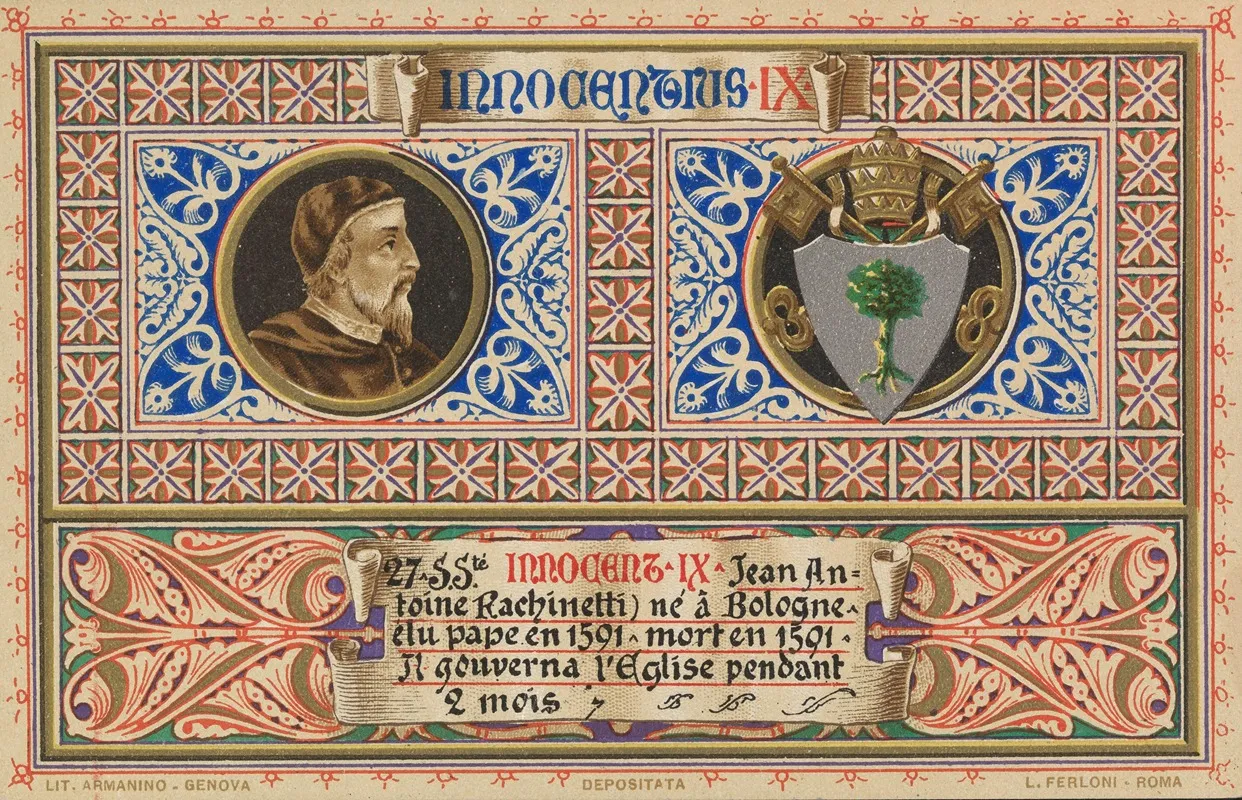 INNOCENTIUS·IX·
27·S.Sté INNOCENT·IX· Jean An=
toine Fachinetti) né à Bologne·
élu pape en 1591· mort en 1591·
Il gouverna l'Eglise pendant
2 mois
LIT. ARMANINO - GENOVA
DEPOSITATA
L. FERLONI - ROMA